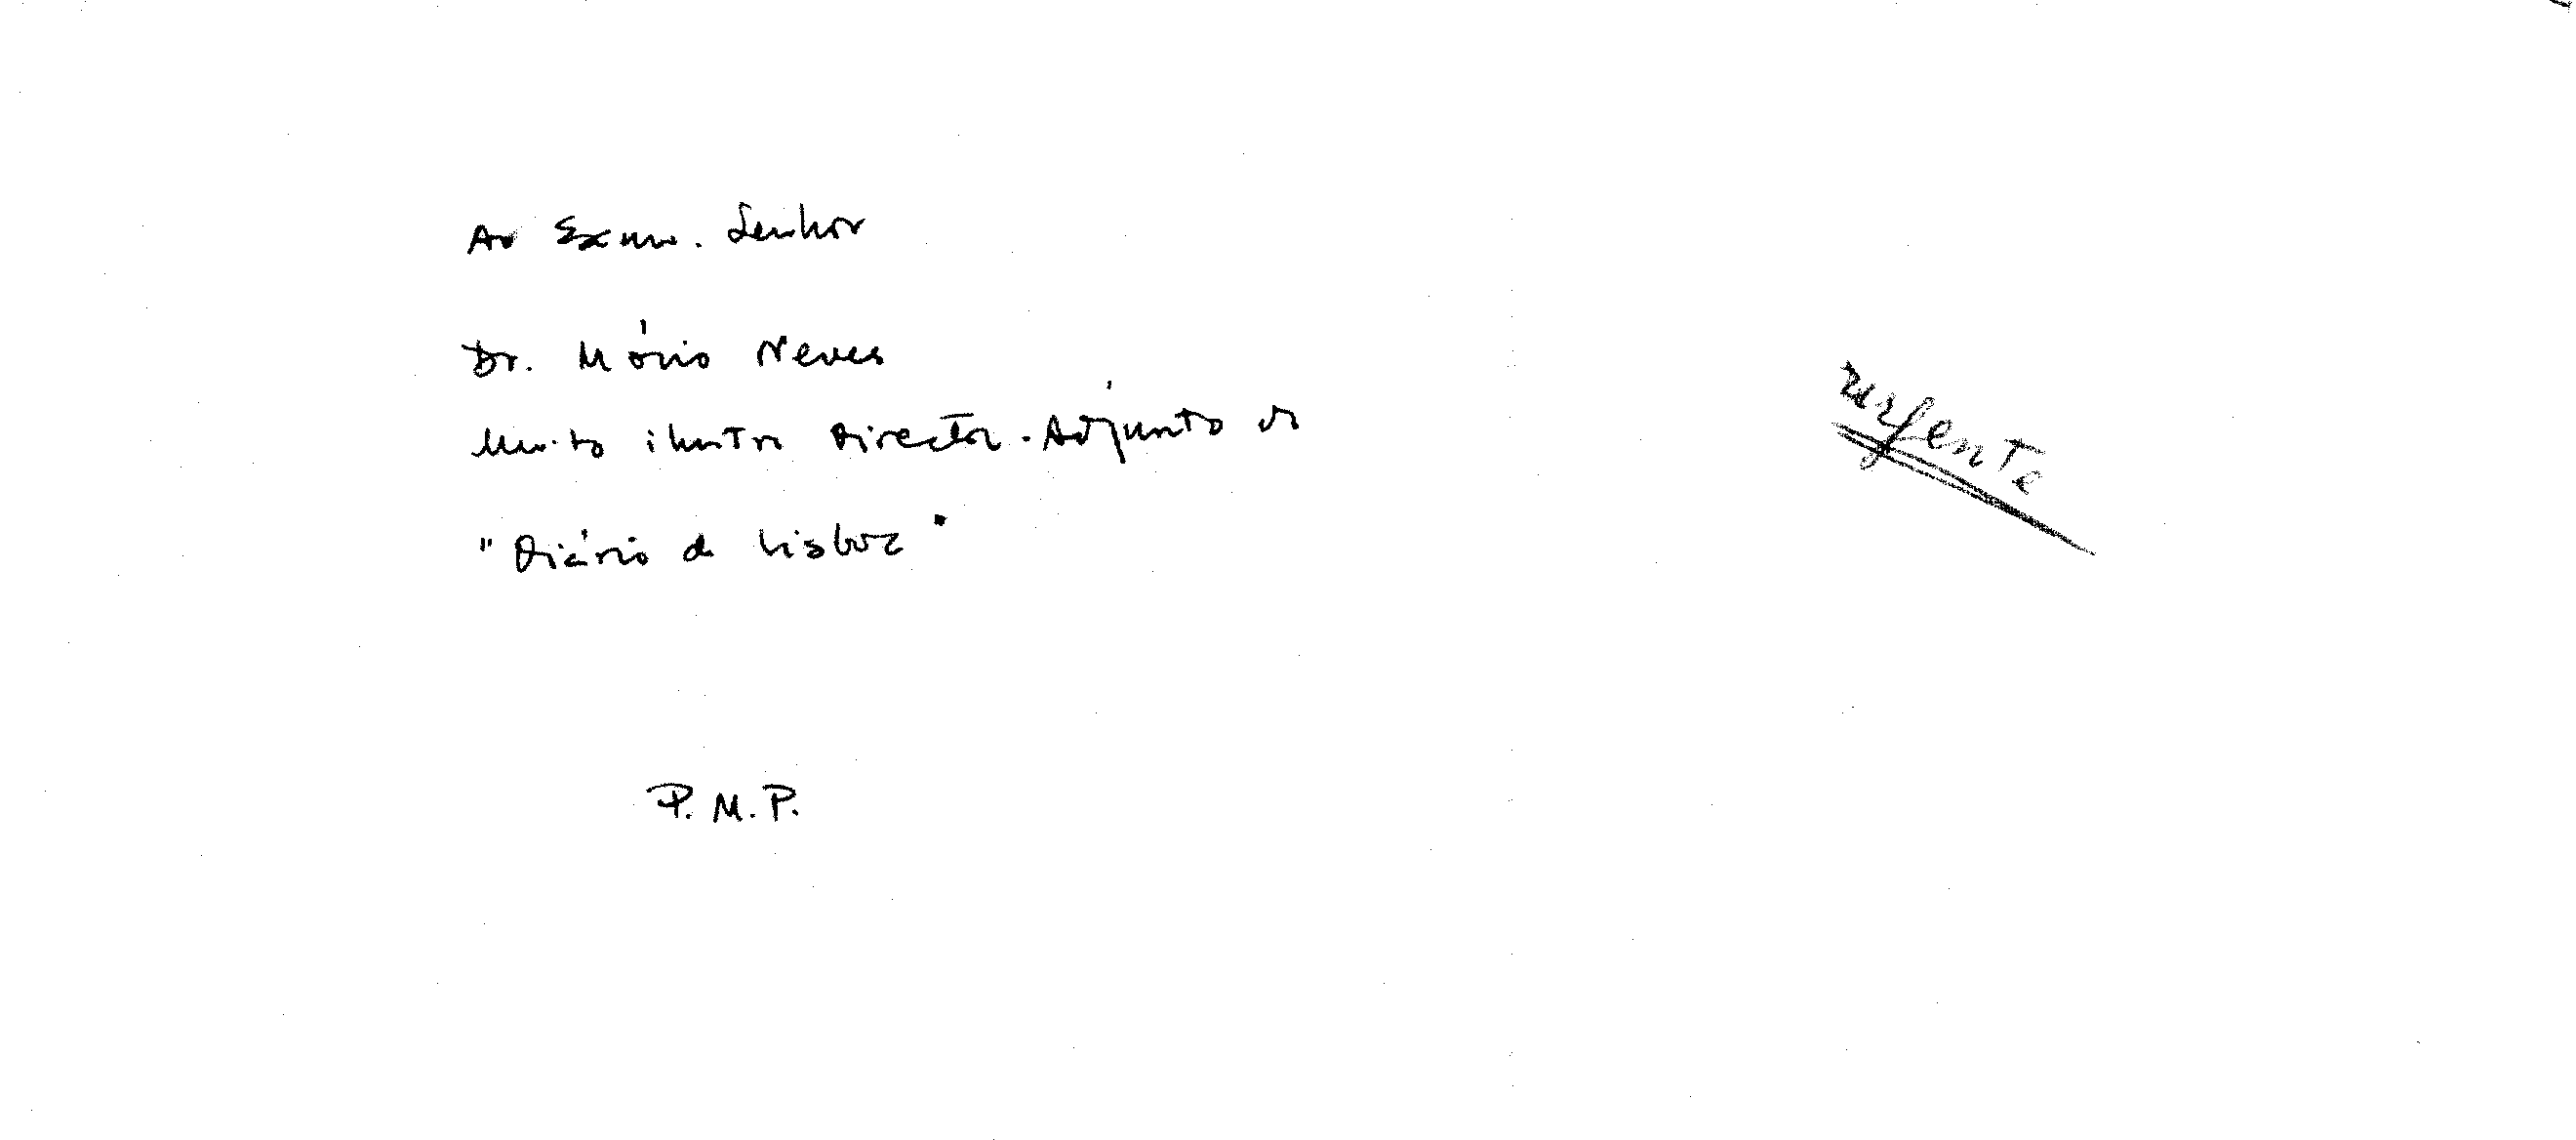 Ao Exmo. Senhor
Dr. Mário Neves
Muito ilustre Director-Adjunto do
"Diário de Lisboa"
urgente
P.M.P.